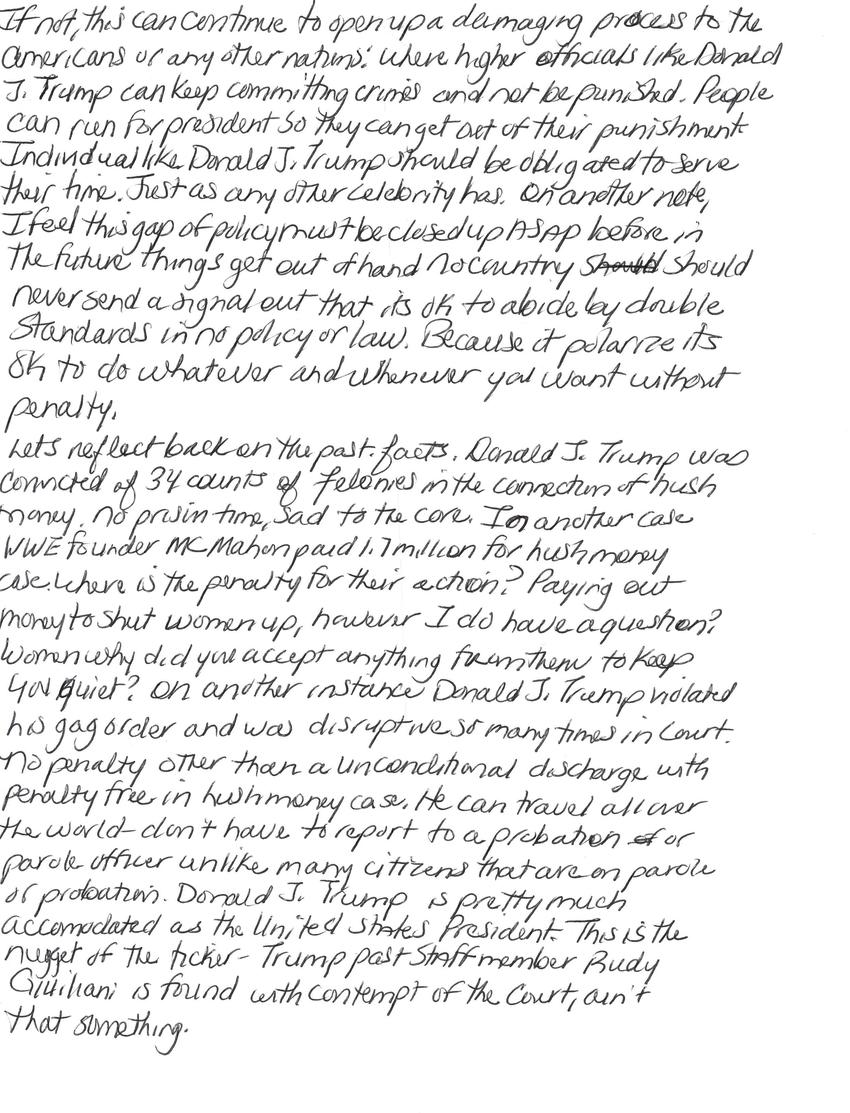 If not, this can continue to open up a damaging process to the
Americans or any other nations: where higher officials like Donald
J. Trump can keep committing crimes and not be punished. People
can run for president so they can get out of their punishment
Individual like Donald J. Trump should be obligated to serve
their time. Just as any other celebrity has. On another note,
I feel this gap of policy must be closed up ASAP before in
the future things get out of hand No country should should
never send a signal out that its ok to abide by double
standards in no policy or law. Because it polarize its
ok to do whatever and whenever you want without
penalty.
Lets reflect back on the past. facts. Donald J. Trump was
convicted of 34 counts of felonies in the connection of hush
money. No prisin time, sad to the core. In another case
WWE founder MC Mahon paid 1.7 million for hush money
case. Where is the penalty for their action? Paying out
money to shut women up, however I do have a question?
Women why did you accept anything from them to keep
you quiet? On another instance Donald J. Trump violated
his gag order and was disruptive so many times in court.
No penalty other than a unconditional discharge with
penalty free in hush money case. He can travel all over
the world - don't have to report to a probation or
parole officer unlike many citizens that are on parole
or probation. Donald J. Trump is pretty much
accomodated as the United States President. This is the
nugget of the ticker - Trump past Staff member Rudy
Giuiliani is found with contempt of the Court, ain't
that something.